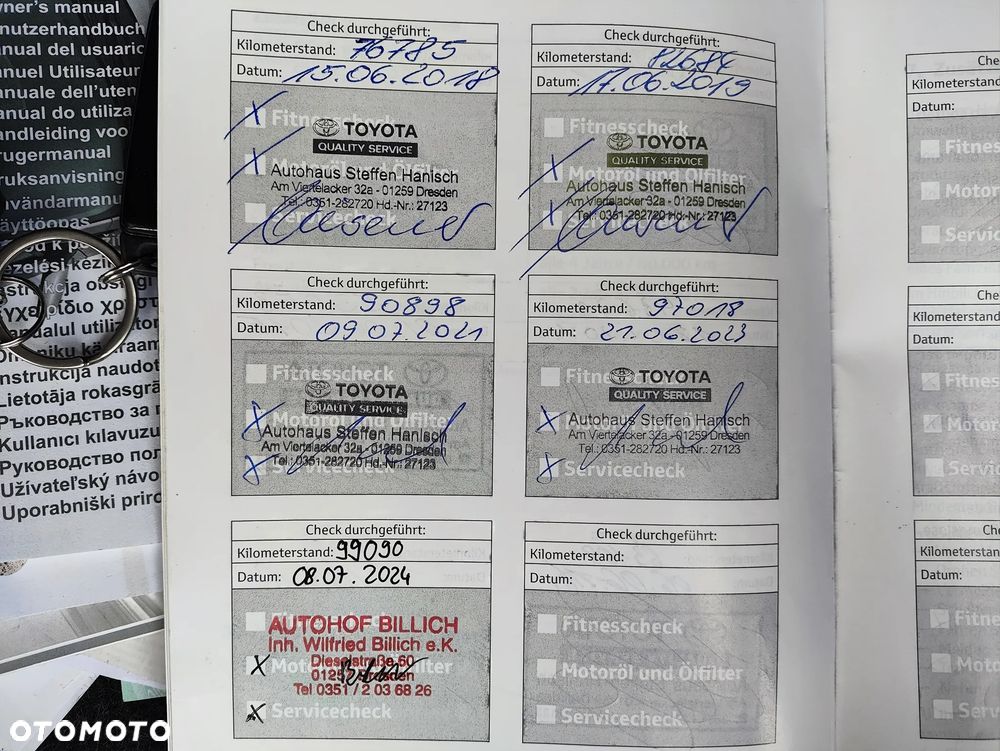 ner's manual
nutzerhandbuch
anual del usuario
anuel Utilisateur
anuale dell'uten
anual do utiliza
andleiding voo
rugermanual
ruksanvisning
nvändarmanu
äyttöopas
Lietotāja rokasgrā
Kullanıcı kılavuzu
Užívateľský návo
Uporabniški priro
Check durchgeführt:
Kilometerstand: 76785
Datum: 15.06.2018
Fitnesscheck
Motoröl und Ölfilter
Servicecheck
TOYOTA
QUALITY SERVICE
Autohaus Steffen Hanisch
Am Viertelacker 32a - 01259 Dresden
Tel.: 0351-282720 Hd.-Nr.: 27123
Check durchgeführt:
Kilometerstand: 82684
Datum: 17.06.2019
Fitnesscheck
Motoröl und Ölfilter
Servicecheck
TOYOTA
QUALITY SERVICE
Autohaus Steffen Hanisch
Am Viertelacker 32a - 01259 Dresden
Tel.: 0351-282720 Hd.-Nr.: 27123
Check durchgeführt:
Kilometerstand: 90898
Datum: 09.07.2021
Fitnesscheck
Motoröl und Ölfilter
Servicecheck
TOYOTA
QUALITY SERVICE
Autohaus Steffen Hanisch
Am Viertelacker 32a - 01259 Dresden
Tel.: 0351-282720 Hd.-Nr.: 27123
Check durchgeführt:
Kilometerstand: 97018
Datum: 21.06.2023
Fitnesscheck
Servicecheck
TOYOTA
QUALITY SERVICE
Autohaus Steffen Hanisch
Am Viertelacker 32a - 01259 Dresden
Tel.: 0351-282720 Hd.-Nr.: 27123
Check durchgeführt:
Kilometerstand: 99090
Datum: 08.07.2024
Fitnesscheck
Servicecheck
AUTOHOF BILLICH
Inh. Wilfried Billich e.K.
Dieselstraße 60
Dresden
Tel 0351 / 2 03 68 26
Check durchgeführt:
Kilometerstand:
Datum:
Fitnesscheck
Motoröl und Ölfilter
Servicecheck
Che
Kilometerstand
Datum:
Fitnes
Motor
Servic
Che
Kilometerstan
Datum:
Fitnes
Motor
Servic
Ch
Kilometerstan
Datum:
Fitn
Motor
Servic
OTOMOTO